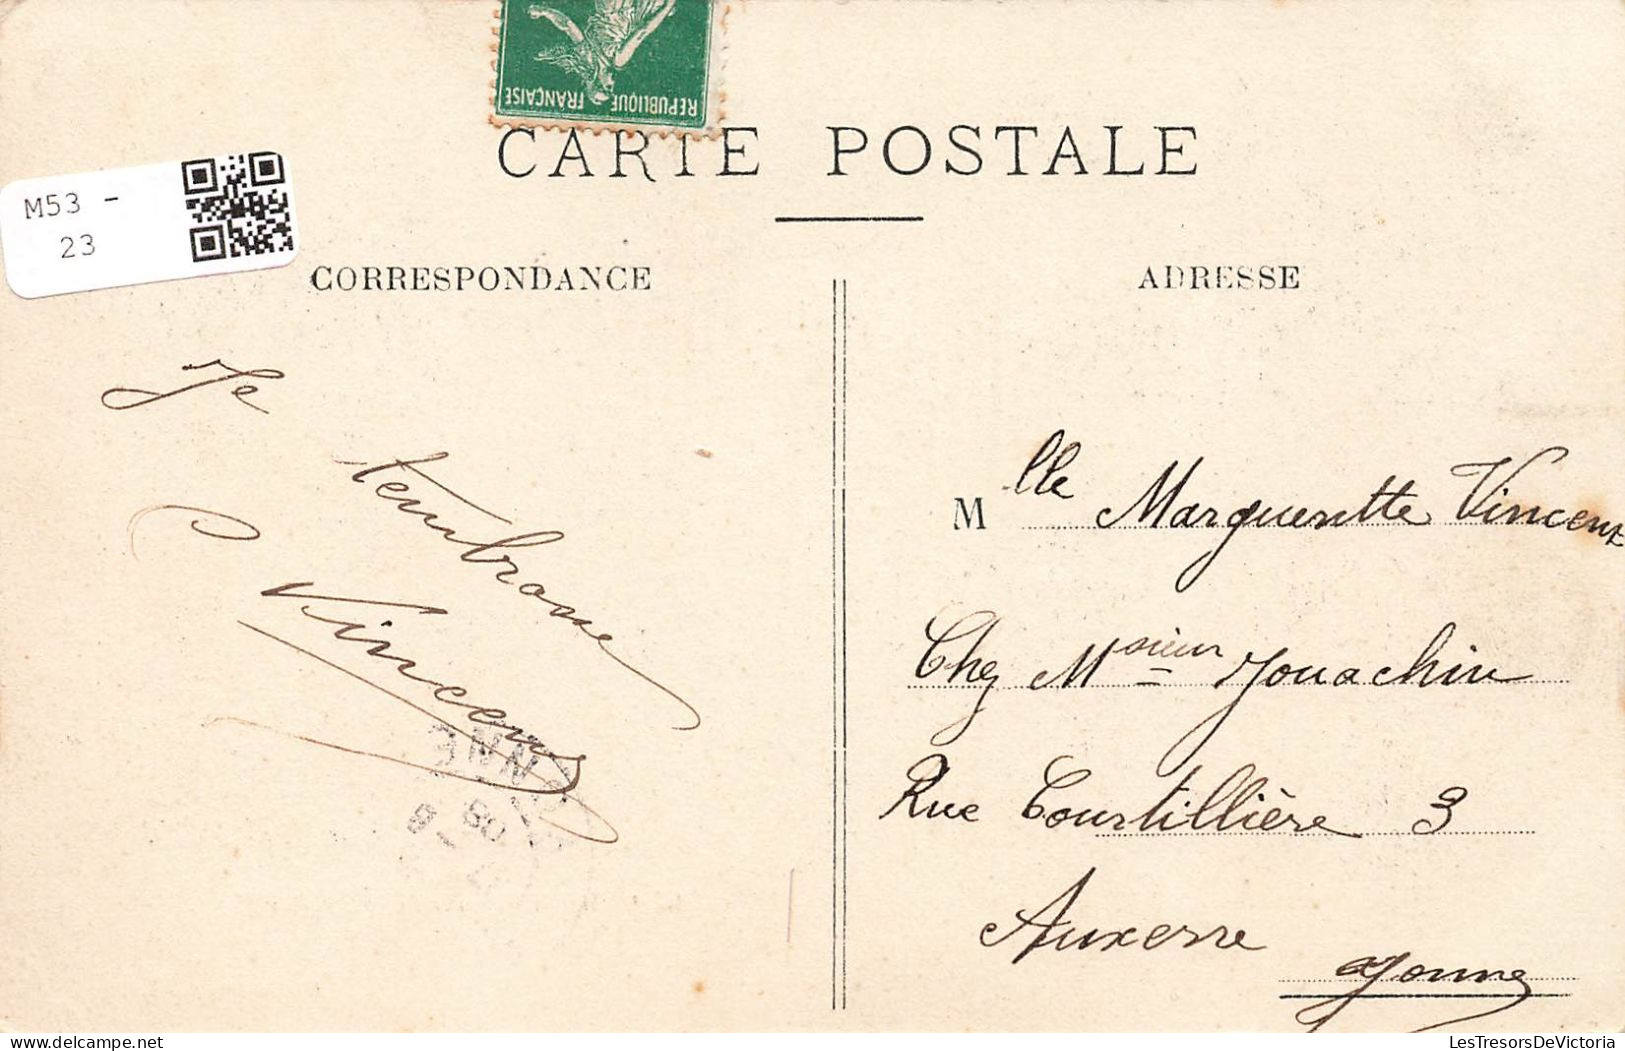 REPUBLIQUE FRANÇAISE
CARTE POSTALE
M53 -
23
CORRESPONDANCE
ADRESSE
Je
t'embrasse
Vincent
M lle Margueritte Vincent
Chez Monsieur Jouachin
Rue Courtillière 3
Auxerre
Yonne
YONNE
08
LesTresorsDeVictoria